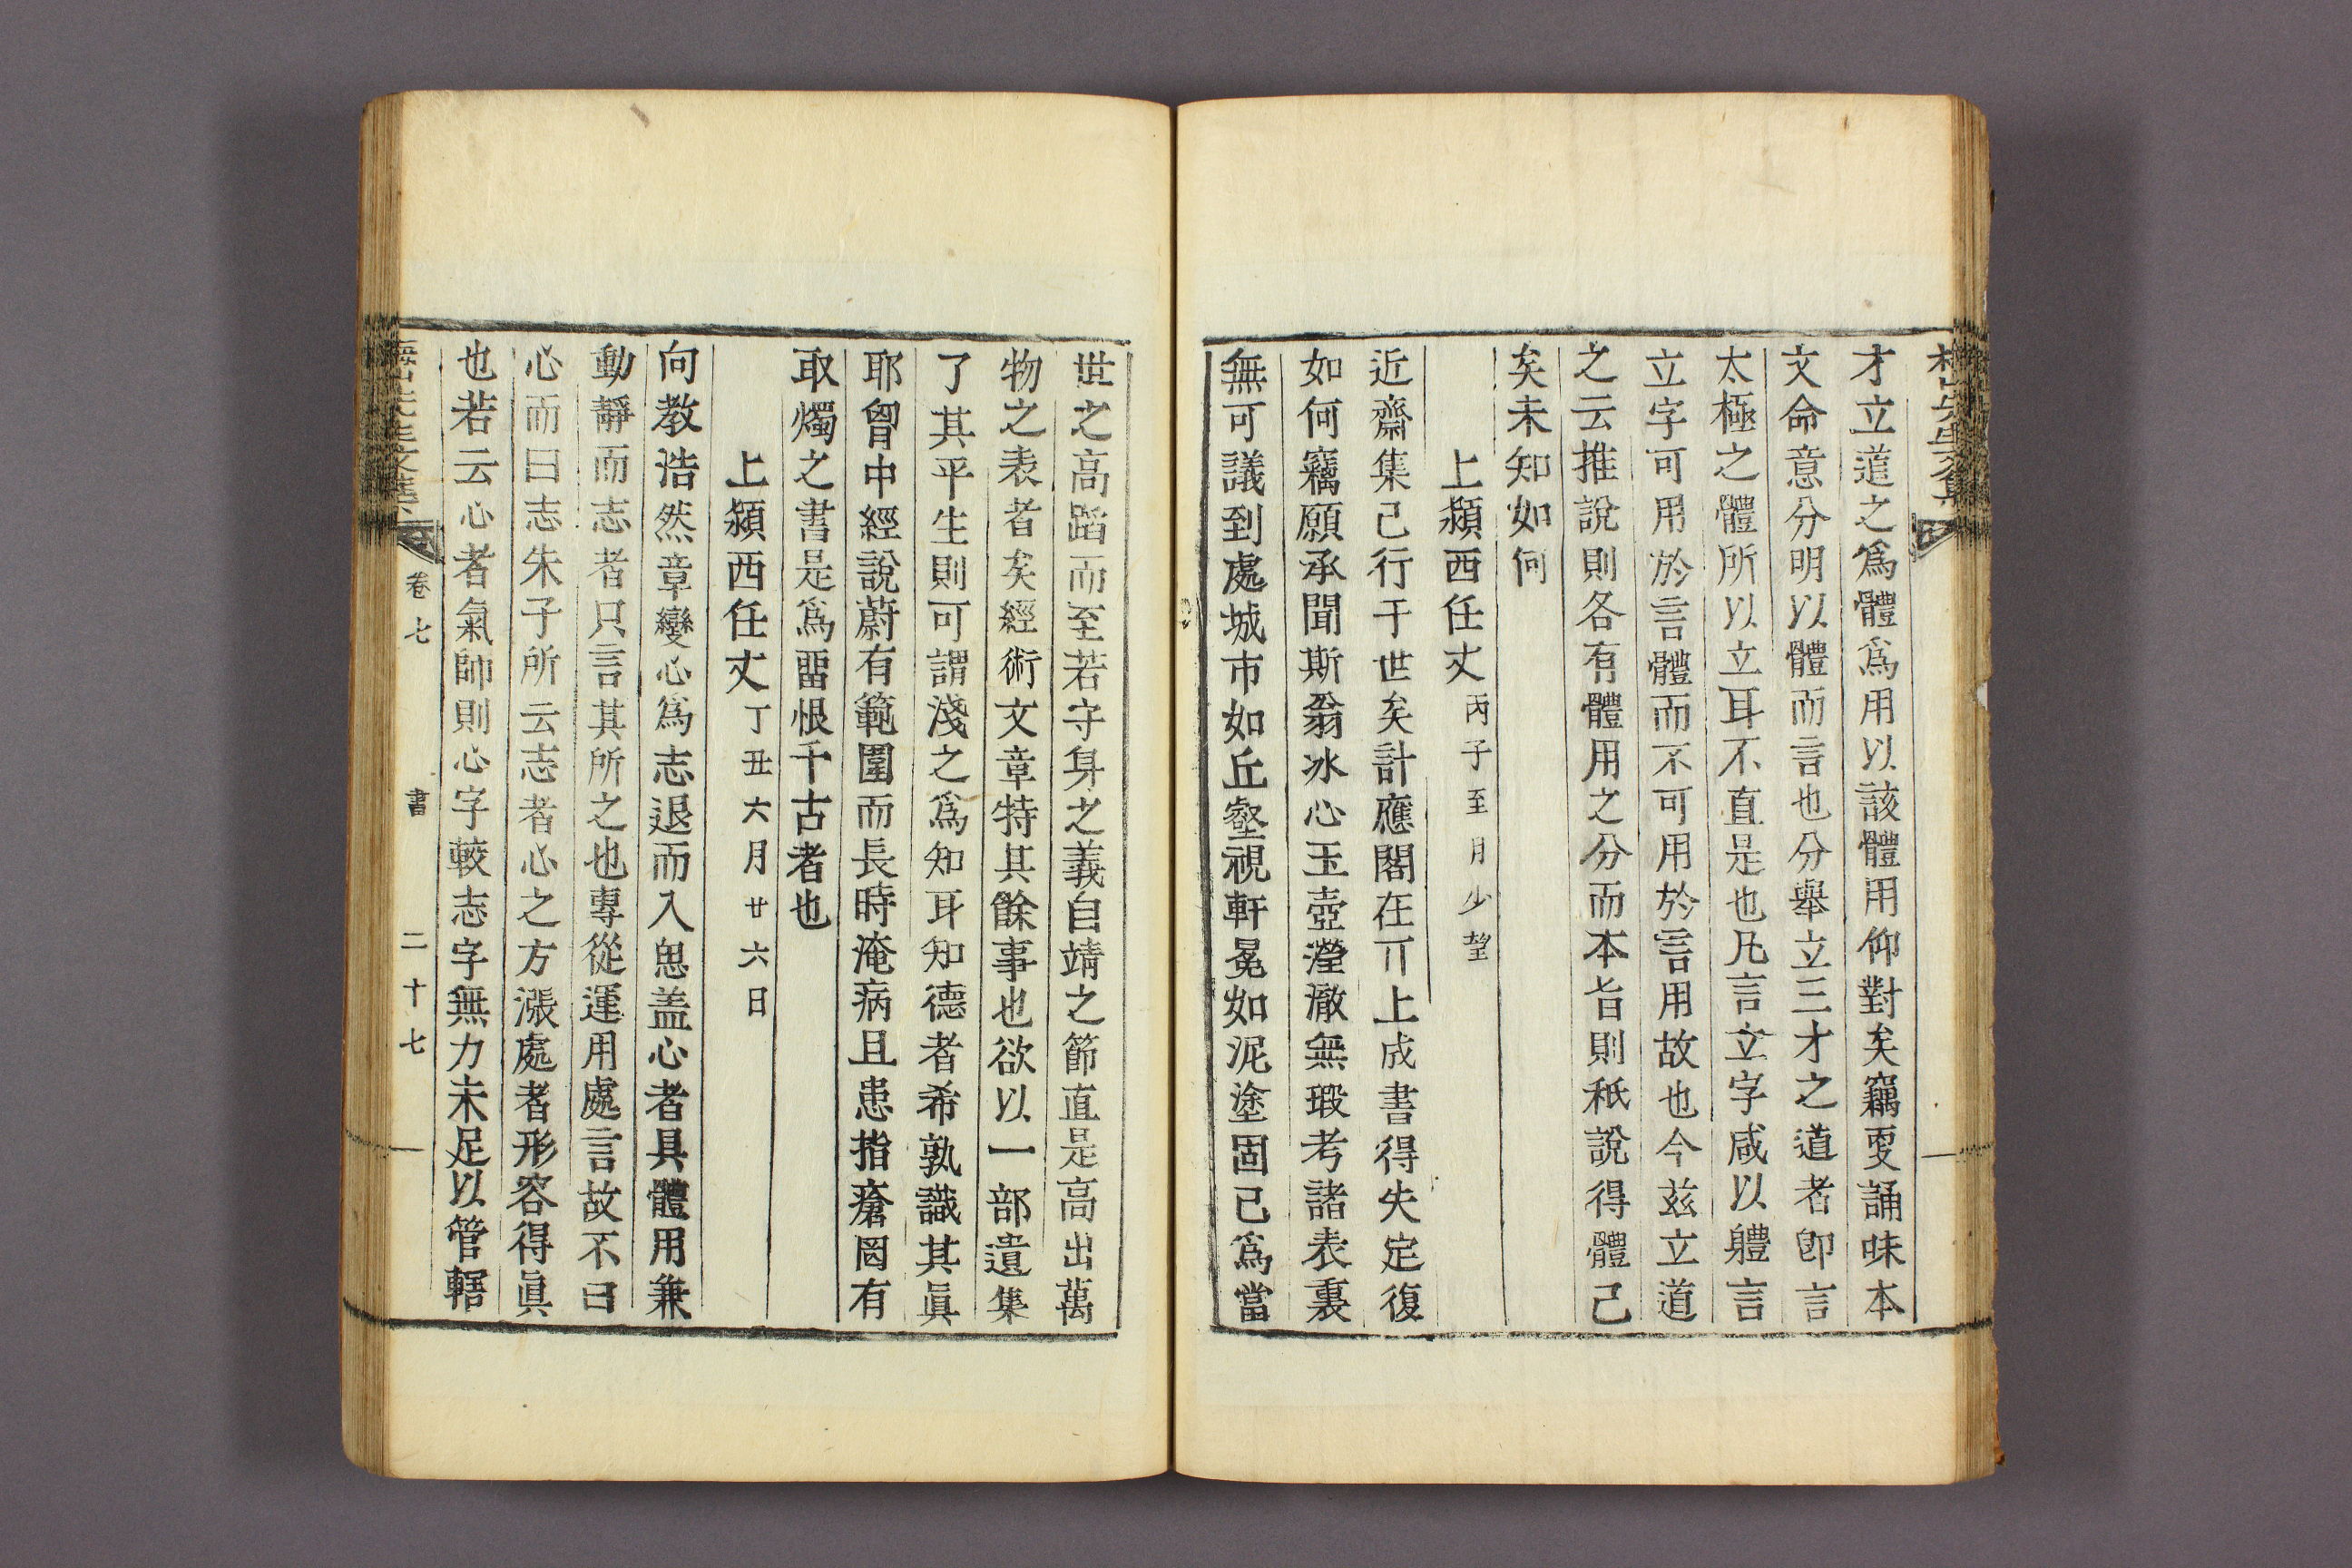 才立道之爲體爲用以該體用仰對矣竊更誦味本
文命意分明以體而言也分舉立三才之道者卽言
太極之體所以立耳不直是也凡言立字咸以軆言
立字可用於言體而不可用於言用故也今玆立道
之云推說則各有體用之分而本旨則秖說得體己
矣未知如何
上潁西任丈丙子至月少望
近齋集已行于世矣計應閣在丌上成書得失定復
如何竊願承聞斯翁冰心玉壺瀅澈無瑕考諸表裏
無可議到處城市如丘壑視軒冕如泥塗固已爲當
世之高蹈而至若守身之義自靖之節直是高出萬
物之表者矣經術文章特其餘事也欲以一部遺集
了其平生則可謂淺之爲知耳知德者希孰識其眞
耶曾中經說蔚有範圍而長時淹病且患指瘡罔有
取燭之書是爲畱恨千古者也
上潁西任丈丁丑六月廿六日
向教浩然章變心爲志退而入思盖心者具體用兼
動靜而志者只言其所之也專從運用處言故不曰
心而曰志朱子所云志者心之方漲處者形容得眞
也若云心者氣師則心字較志字無力未足以管轄
卷七 書 二十七